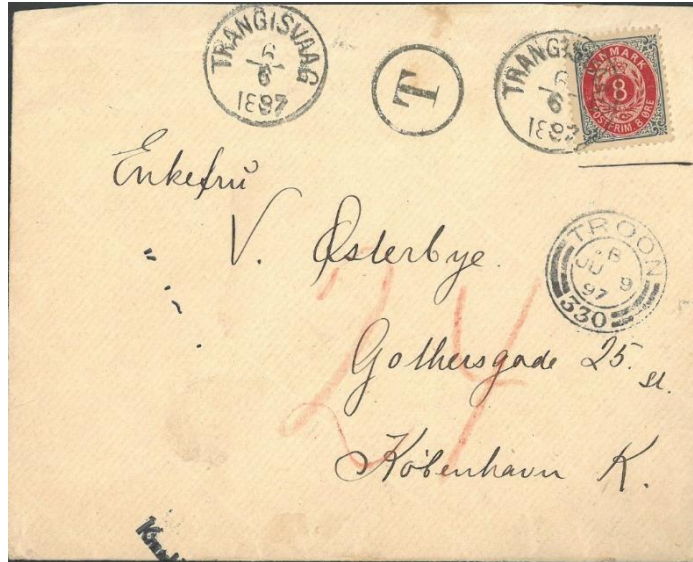 TRANGISVAAG
6
6
1897
T
TRANGIS
6
6
1897
DANMARK
8
POSTFRIM. 8 ØRE
Enkefru
V. Østerbye.
TROON
JU 9
97
330
24
Gothersgade 25. st.
København K.